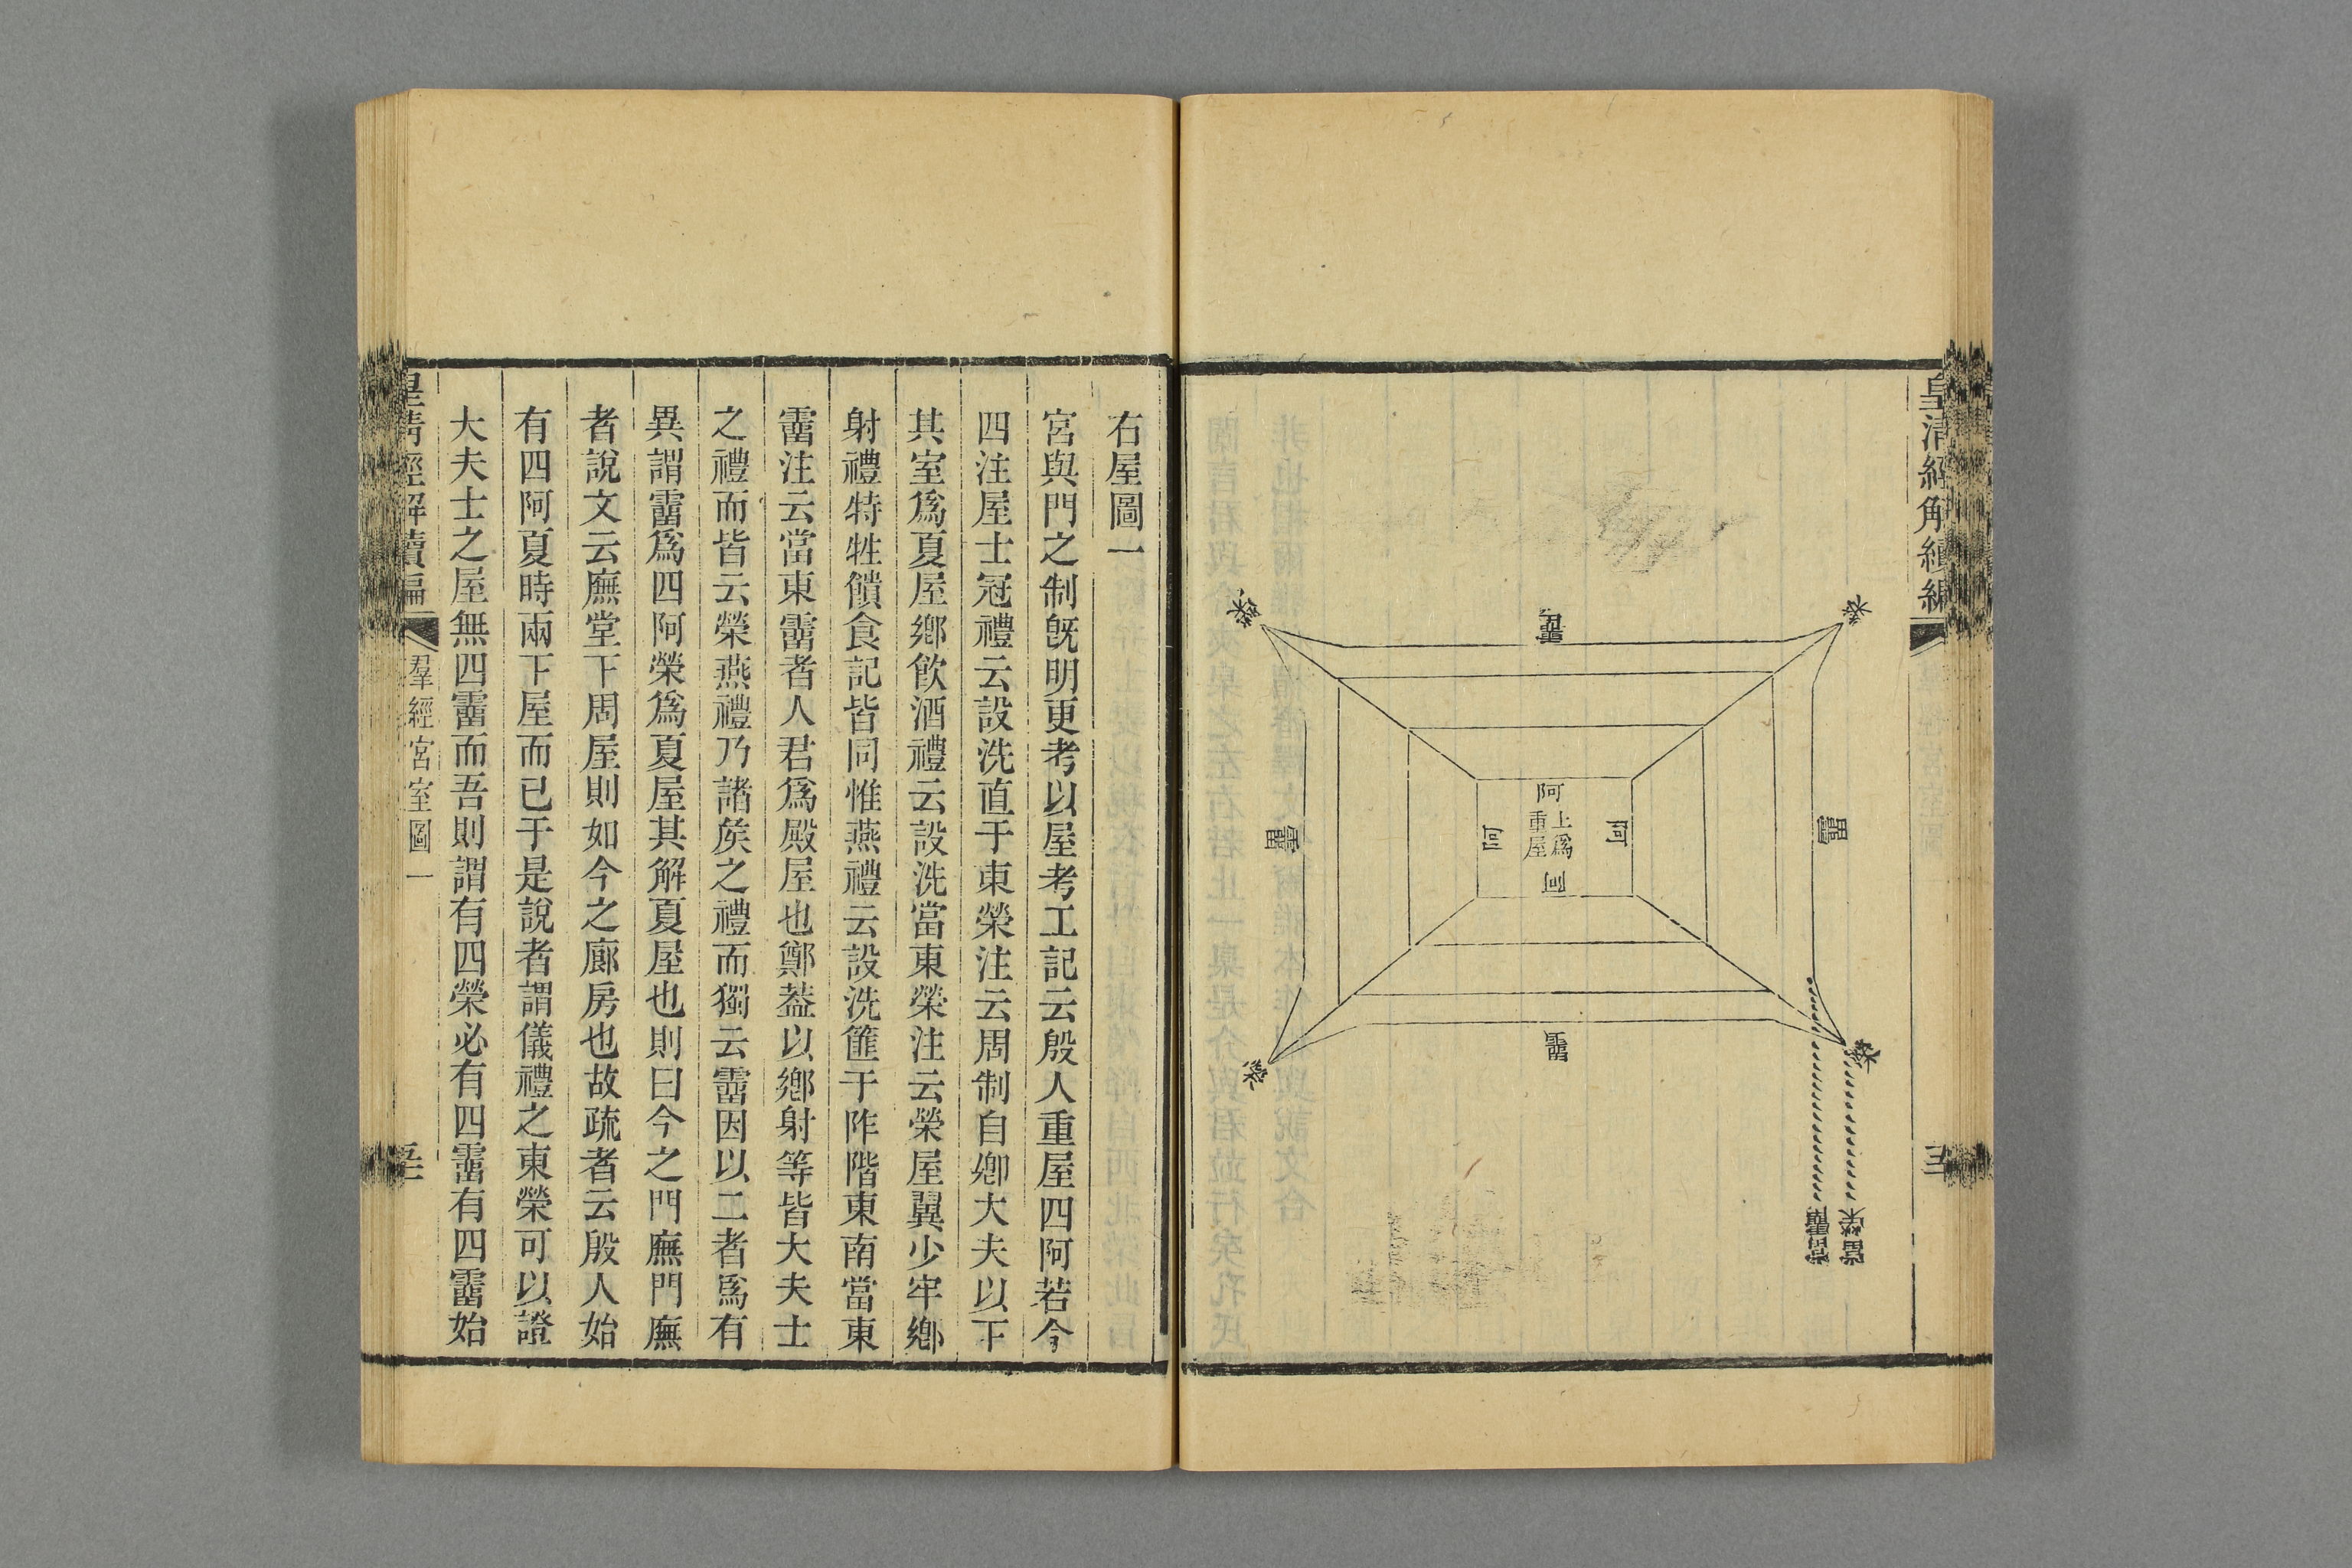 皇清經解續編
榮
霤
榮
霤
阿
上爲
重屋
阿
阿
阿
霤
榮
霤
榮
當榮
當霤
右屋圖一
宮與門之制旣明更考以屋考工記云殷人重屋四阿若今
四注屋士冠禮云設洗直于東榮注云周制自卿大夫以下
其室爲夏屋鄉飮酒禮云設洗當東榮注云榮屋翼少牢鄉
射禮特牲饋食記皆同惟燕禮云設洗篚于阼階東南當東
霤注云當東霤者人君爲殿屋也鄭葢以鄉射等皆大夫士
之禮而皆云榮燕禮乃諸矦之禮而獨云霤因以二者爲有
異謂霤爲四阿榮爲夏屋其解夏屋也則曰今之門廡門廡
者說文云廡堂下周屋則如今之廊房也故疏者云殷人始
有四阿夏時兩下屋而已于是說者謂儀禮之東榮可以證
大夫士之屋無四霤而吾則謂有四榮必有四霤有四霤始
皇清經解續編
羣經宮室圖一